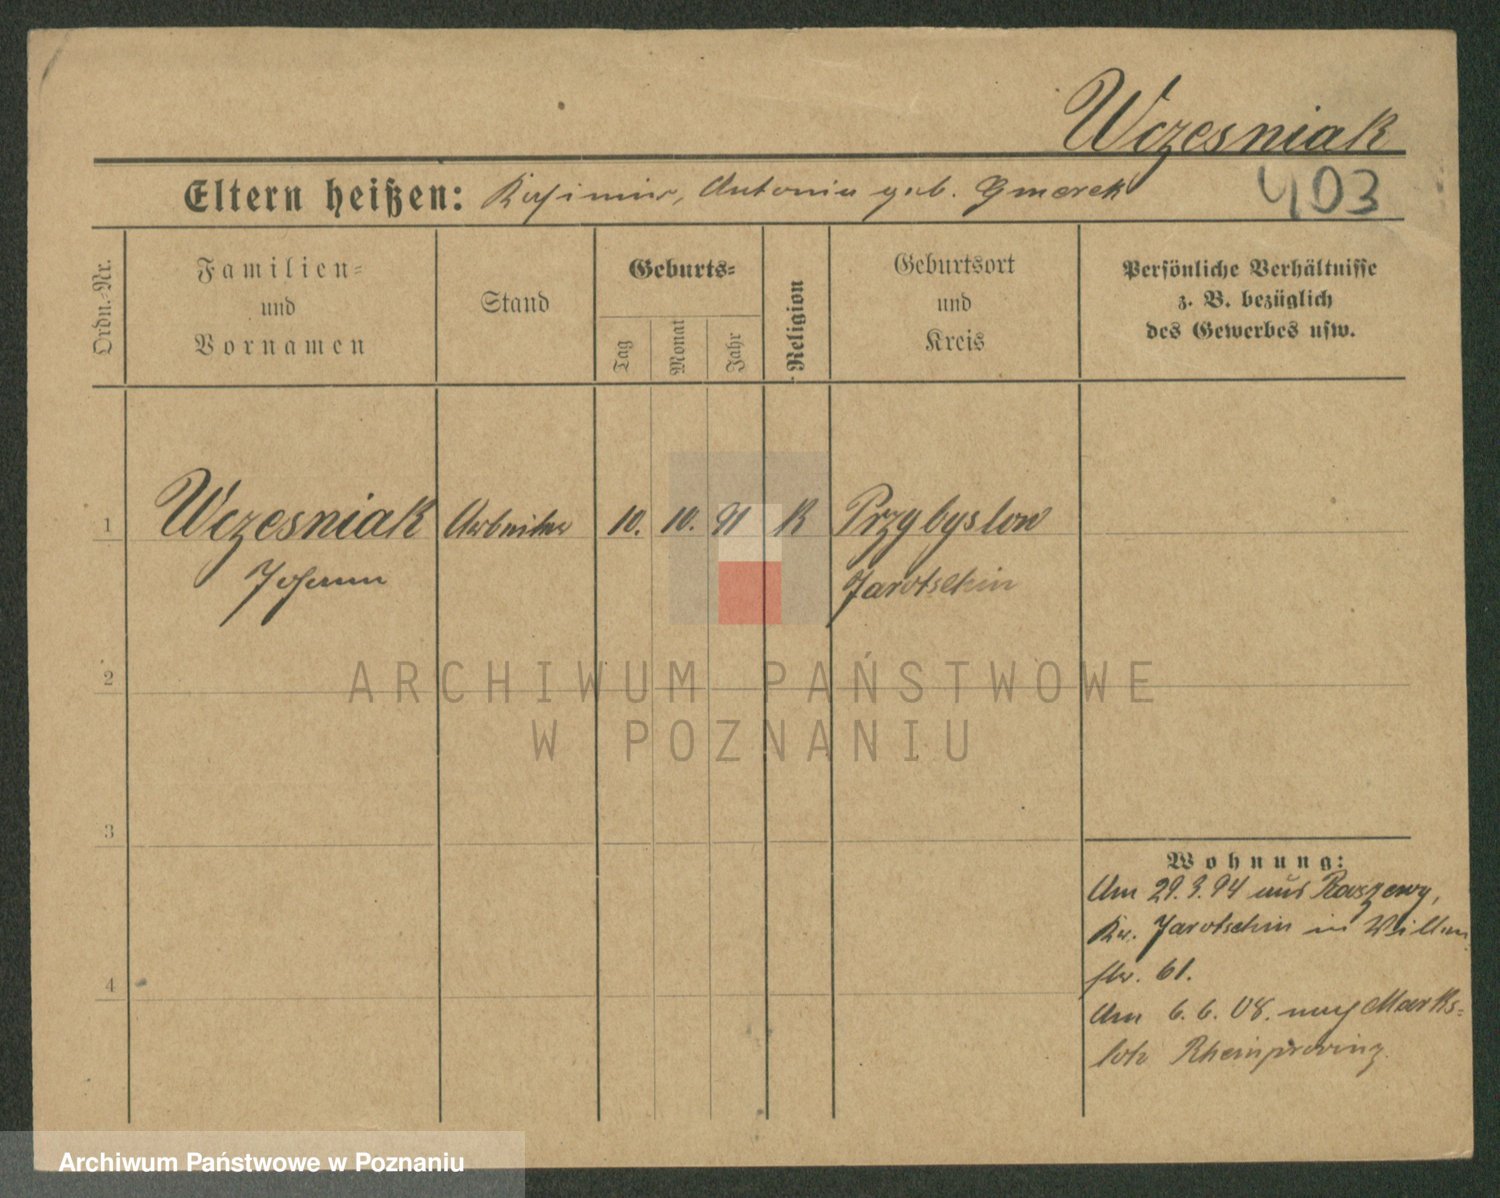 Wczesniak
Eltern heißen: Kasimir, Antonia geb. Gmerek
403
Ordn.-Nr.
Familien-
und
Vornamen
Stand
Geburts-
Tag
Monat
Jahr
Religion
Geburtsort
und
Kreis
Persönliche Verhältnisse
z. B. bezüglich
des Gewerbes usw.
1
Wczesniak
Johann
Arbeiter
10.
10.
91
K
Przybyslow
Jarotschin
2
3
4
Wohnung:
Am 29.3.94 aus Raszewy,
Kr. Jarotschin in
str. 61.
Am 6.6.08. nach Marks-
loh Rheinprovinz.
ARCHIWUM PAŃSTWOWE
W POZNANIU
Archiwum Państwowe w Poznaniu